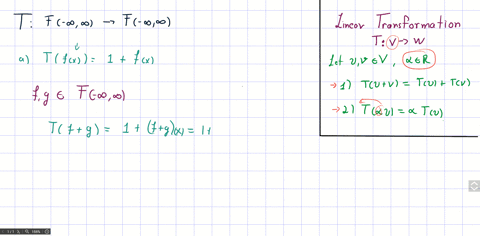 T: F(-∞,∞) → F(-∞,∞)
a) T(f(x)) = 1 + f(x)
f,g ∈ F(-∞,∞)
T(f+g) = 1 + (f+g)(x) = 1+
Linear Transformation
T: V → W
Let u,v ∈ V, α ∈ R
→ 1) T(u+v) = T(u) + T(v)
→ 2) T(αu) = α T(u)